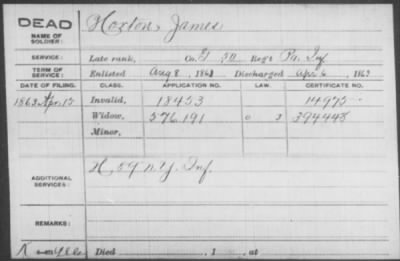 DEAD Hoxton, James
NAME OF SOLDIER:
SERVICE: Late rank, Co. Reg't Pa. Inf
TERM OF SERVICE: Enlisted Aug 8, 186 Discharged Apr 6, 1863
DATE OF FILING. CLASS. APPLICATION NO. LAW. CERTIFICATE NO.
1863 Apr. 17 Invalid, 18453 14975
Widow, 576.191 394448
Minor,
ADDITIONAL SERVICES: H, 59 N.Y. Inf.
REMARKS:
Died , 1 at